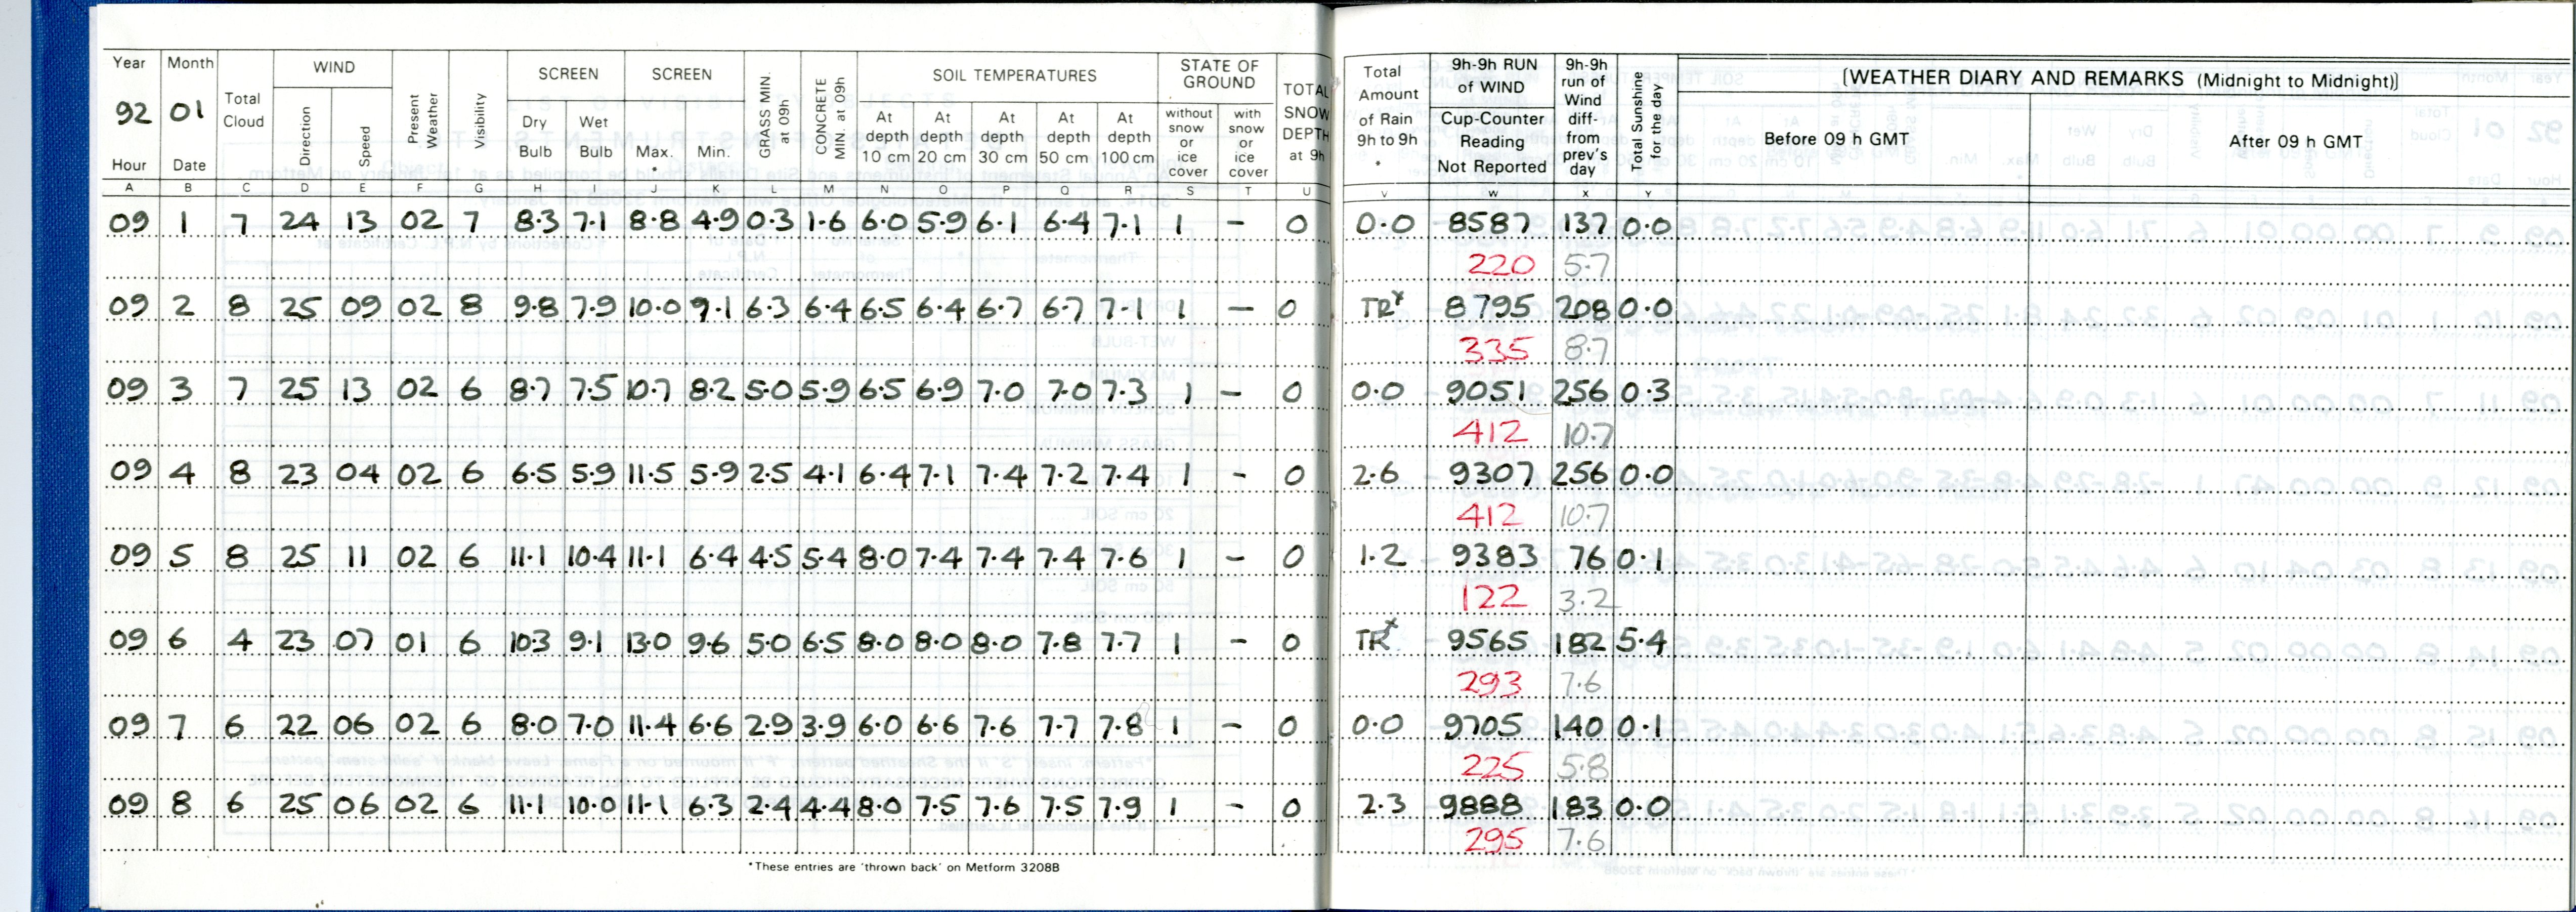 Year Month WIND SCREEN SCREEN SOIL TEMPERATURES STATE OF GROUND
92 01 Total Cloud Direction Speed Present Weather Visibility Dry Bulb Wet Bulb Max. * Min. GRASS MIN. at 09h CONCRETE MIN. at 09h At depth 10 cm At depth 20 cm At depth 30 cm At depth 50 cm At depth 100 cm without snow or ice cover with snow or ice cover TOTAL SNOW DEPTH at 9h Total Amount of Rain 9h to 9h * 9h-9h RUN of WIND Cup-Counter Reading Not Reported 9h-9h run of Wind diff- from prev's day Total Sunshine for the day [WEATHER DIARY AND REMARKS (Midnight to Midnight)]
Hour Date Before 09 h GMT After 09 h GMT
A B C D E F G H I J K L M N O P Q R S T U V W X Y
09 1 7 24 13 02 7 8.3 7.1 8.8 4.9 0.3 1.6 6.0 5.9 6.1 6.4 7.1 1 - 0 0.0 8587 137 0.0
220 5.7
09 2 8 25 09 02 8 9.8 7.9 10.0 9.1 6.3 6.4 6.5 6.4 6.7 6.7 7.1 1 - 0 TR* 8795 208 0.0
335 8.7
09 3 7 25 13 02 6 8.7 7.5 10.7 8.2 5.0 5.9 6.5 6.9 7.0 7.0 7.3 1 - 0 0.0 9051 256 0.3
412 10.7
09 4 8 23 04 02 6 6.5 5.9 11.5 5.9 2.5 4.1 6.4 7.1 7.4 7.2 7.4 1 - 0 2.6 9307 256 0.0
412 10.7
09 5 8 25 11 02 6 11.1 10.4 11.1 6.4 4.5 5.4 8.0 7.4 7.4 7.4 7.6 1 - 0 1.2 9383 76 0.1
122 3.2
09 6 4 23 07 01 6 10.3 9.1 13.0 9.6 5.0 6.5 8.0 8.0 8.0 7.8 7.7 1 - 0 TR* 9565 182 5.4
293 7.6
09 7 6 22 06 02 6 8.0 7.0 11.4 6.6 2.9 3.9 6.0 6.6 7.6 7.7 7.8 1 - 0 0.0 9705 140 0.1
225 5.8
09 8 6 25 06 02 6 11.1 10.0 11.1 6.3 2.4 4.4 8.0 7.5 7.6 7.5 7.9 1 - 0 2.3 9888 183 0.0
295 7.6
*These entries are 'thrown back' on Metform 3208B